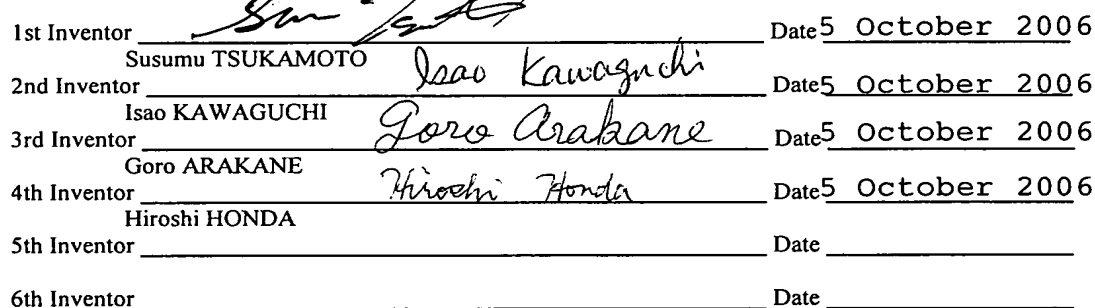 1st Inventor Date 5 October 2006
Susumu TSUKAMOTO Isao Kawaguchi
2nd Inventor Date 5 October 2006
Isao KAWAGUCHI Goro Arakane
3rd Inventor Date 5 October 2006
Goro ARAKANE
4th Inventor Hiroshi Honda Date 5 October 2006
Hiroshi HONDA
5th Inventor Date
6th Inventor Date